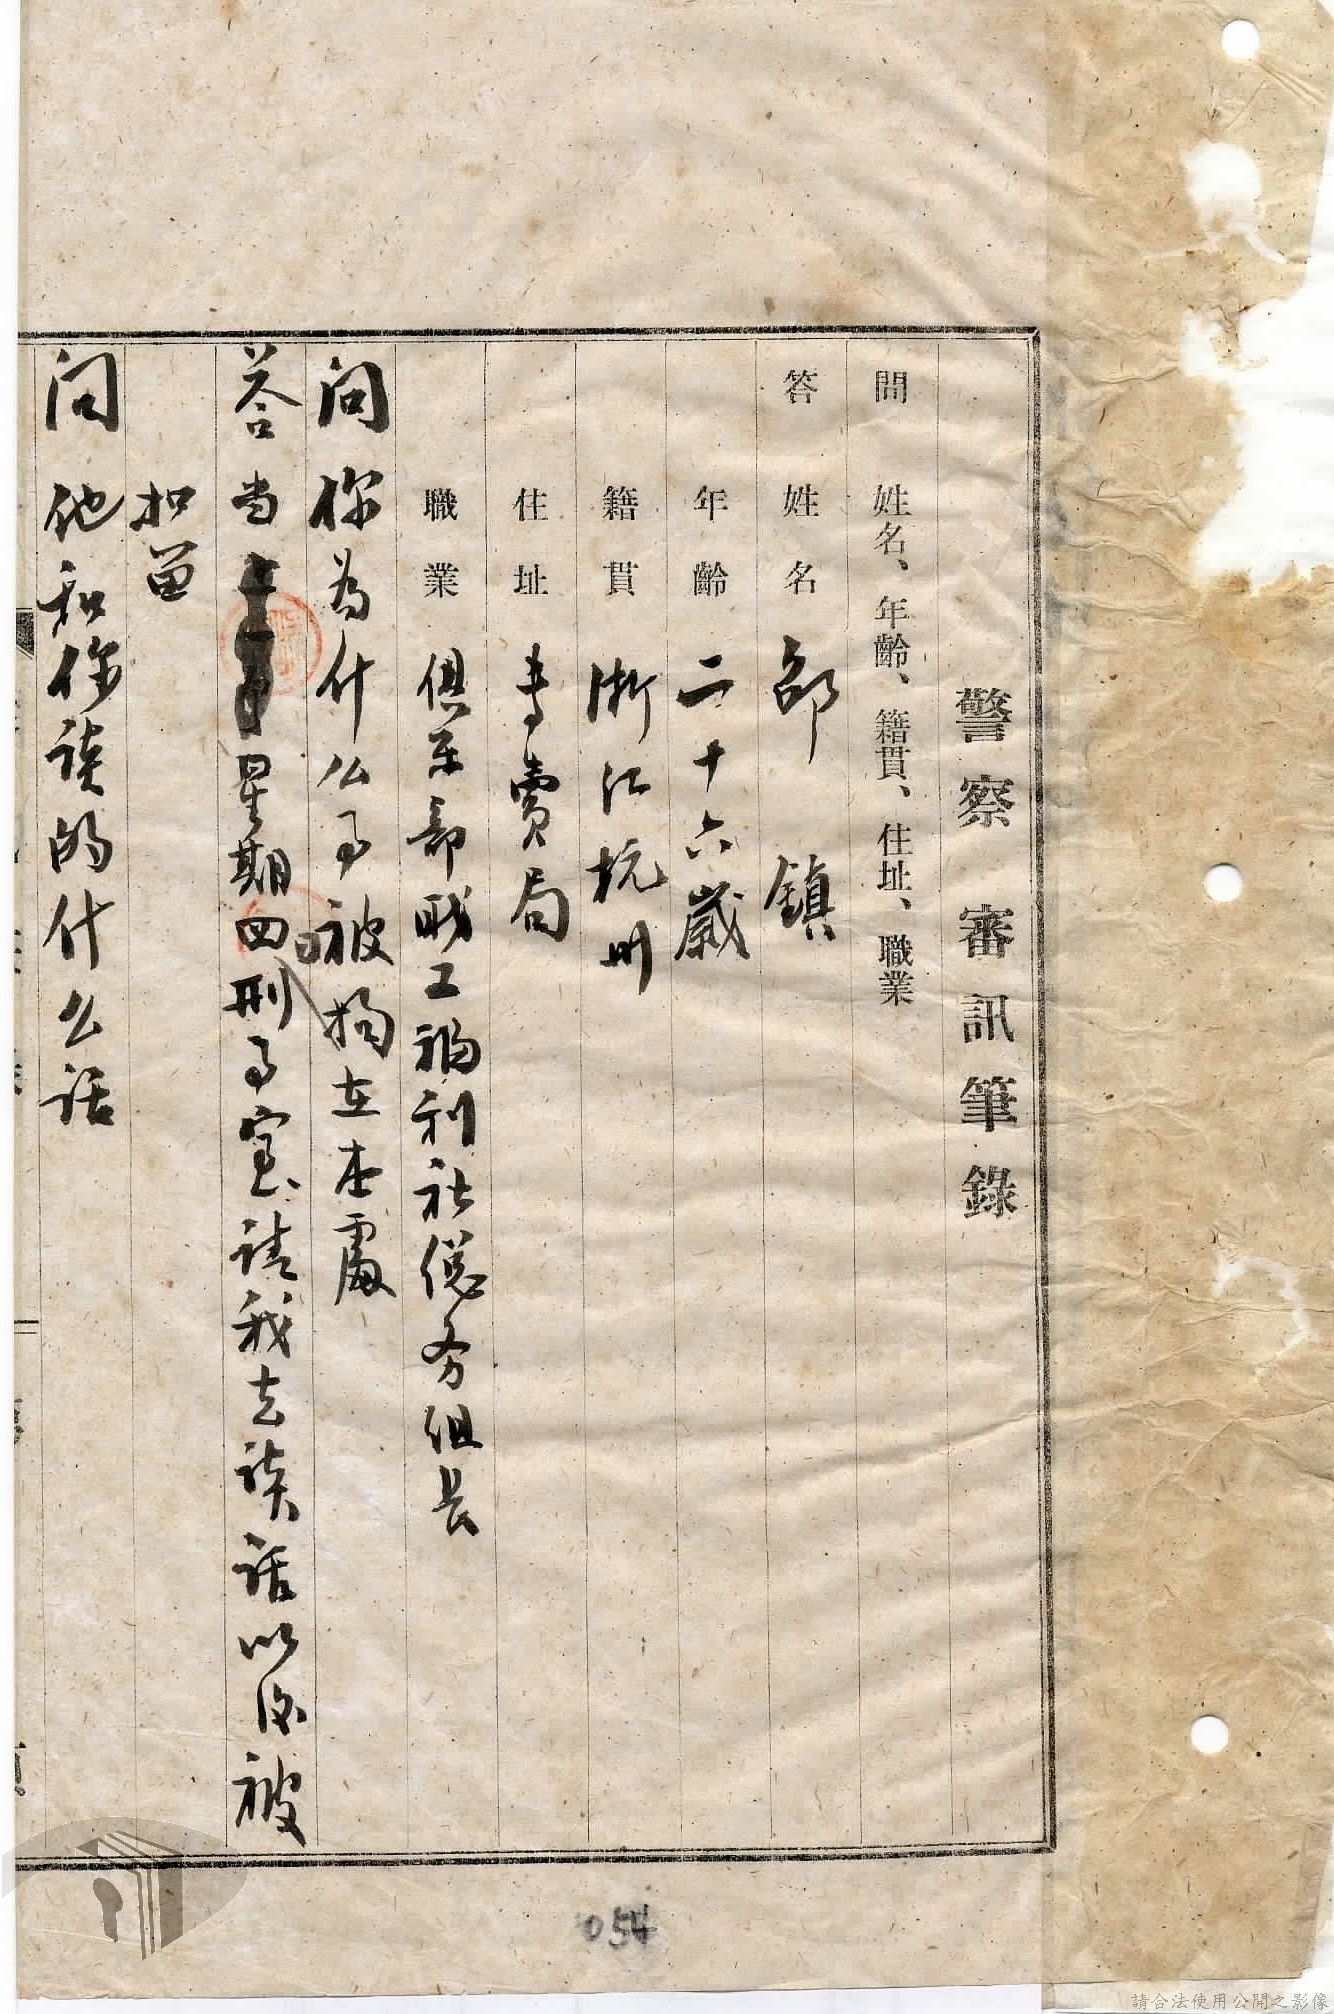 警察審訊筆錄
問 姓名、年齡、籍貫、住址、職業
答 姓名 邵鎮
年齡 二十六歲
籍貫 浙江杭州
住址 专賣局
職業 俱乐部职工福利社总务组長
问 你为什么事被拘在本處
答 当星期四刑事室请我去谈话以後被
扣留
问 他和你谈的什么话
054
請合法使用公開之影像